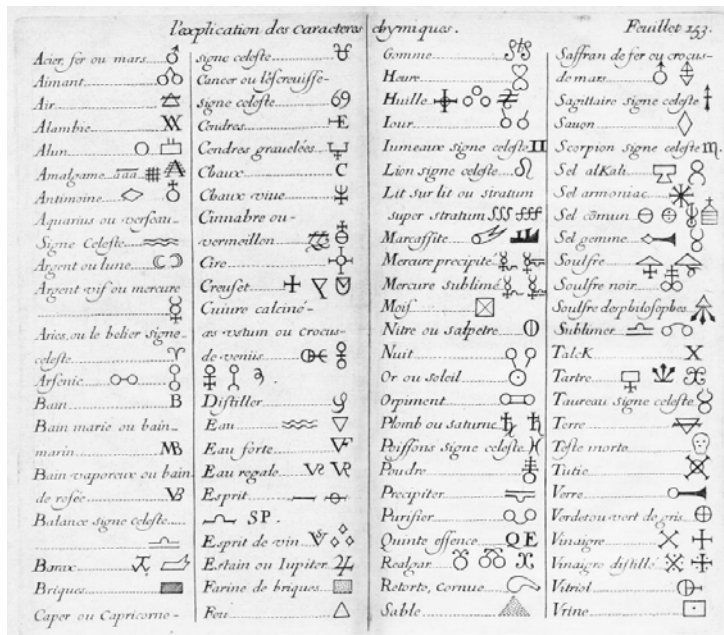 l'explication des Caracteres chymiques. Feuillet 153.
Acier, fer ou mars
Aimant
Air
Alambic
Alun
Amalgame aaa
Antimoine
Aquarius ou verseau
Signe Celeste
Argent ou lune
Argent vif ou mercure
Aries, ou le belier signe
celeste
Arsenic
Bain B
Bain marie ou bain
marin MB
Bain vaporeux ou bain
de rosée VB
Balance signe celeste
Borax
Briques
Caper ou Capricorne
signe celeste
Cancer ou l'escreuisse
signe celeste 69
Cendres E
Cendres grauelées
Chaux C
Chaux viue
Cinnabre ou
vermeillon
Cire
Creuset
Cuiure calciné
æs vstum ou crocus
de venus
Distiller
Eau
Eau forte
Eau regale
Esprit
SP.
Esprit de vin
Estain ou Iupiter
Farine de briques
Feu
Gomme
Heure
Huille
Iour
Iumeaux signe celeste
Lion signe celeste
Lit sur lit ou stratum
super stratum SSS
Marcassite
Mercure precipité
Mercure sublimé
Mois
Nitre ou salpetre
Nuit
Or ou soleil
Orpiment
Plomb ou saturne
Poissons signe celeste
Poudre
Precipiter
Purifier
Quinte essence QE
Realgar
Retorte, cornue
Sable
Saffran de fer ou crocus
de mars
Sagittaire signe celeste
Sauon
Scorpion signe celeste
Sel alKali
Sel armoniac
Sel cōmun
Sel gemme
Soulfre
Soulfre noir
Soulfre des philosophes
Sublimer
Tal-K X
Tartre
Taureau signe celeste
Terre
Teste morte
Tutie
Verre
Verdet ou vert de gris
Vinaigre
Vinaigre distillé
Vitriol
Vrine